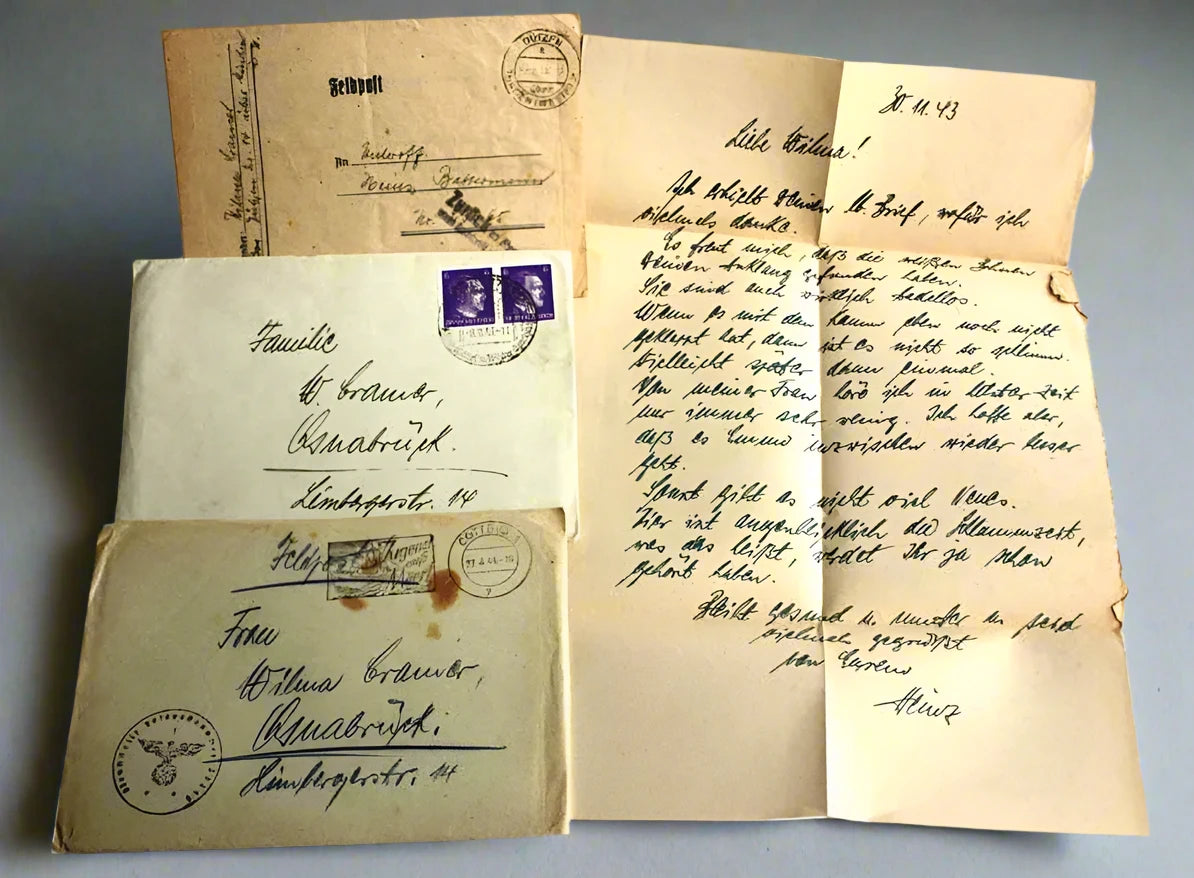 Feldpost
DÜTZEN
An Unteroff.
Heinz
Nr.
Zurück
Familie
W. Cramer,
Osnabrück.
Limbergerstr. 14
Feldpost
COTTBUS 1
Frau
Wilma Cramer,
Osnabrück.
Limbergerstr. 14
30.11.43
Liebe Wilma!
Ich erhielt Deinen lb. Brief, wofür ich
vielmals danke.
Es freut mich, daß die weißen Bohnen
Deinen Anklang gefunden haben.
Sie sind auch wirklich tadellos.
Wenn es mit dem Kamm eben noch nicht
geklappt hat, dann ist es nicht so schlimm.
Vielleicht später dann einmal.
Von meiner Frau höre ich in letzter Zeit
nur immer sehr wenig. Ich hoffe aber,
daß es inzwischen wieder besser
geht.
Sonst gibt es nicht viel Neues.
Hier ist augenblicklich die Schlammzeit,
was das heißt, werdet Ihr ja schon
gehört haben.
Bleibt gesund u. munter u. seid
vielmals gegrüßt
von Eurem
Heinz